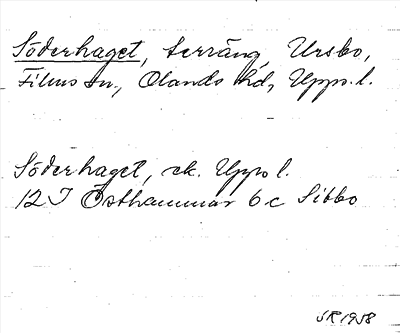 Söderhaget, terräng, Ursbo,
Films sn, Olands hd, Upps. l.
Söderhaget, ek. Upps l.
12 I Östhammar 6 c Sibbo
SR 1958